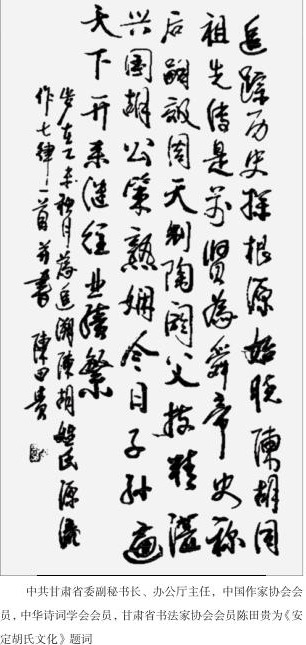 追踪历史探根源始晓陈胡同
祖先传是前贤为舜帝史称
后嗣敬周天制陶阏父技精湛
兴国胡公策熟娴今日子孙遍
天下开来继往业绩繁
岁在乙未秋月为追溯陈胡姓氏源流
作七律一首并书 陈田贵
中共甘肃省委副秘书长、办公厅主任，中国作家协会会
员，中华诗词学会会员，甘肃省书法家协会会员陈田贵为《安
定胡氏文化》题词